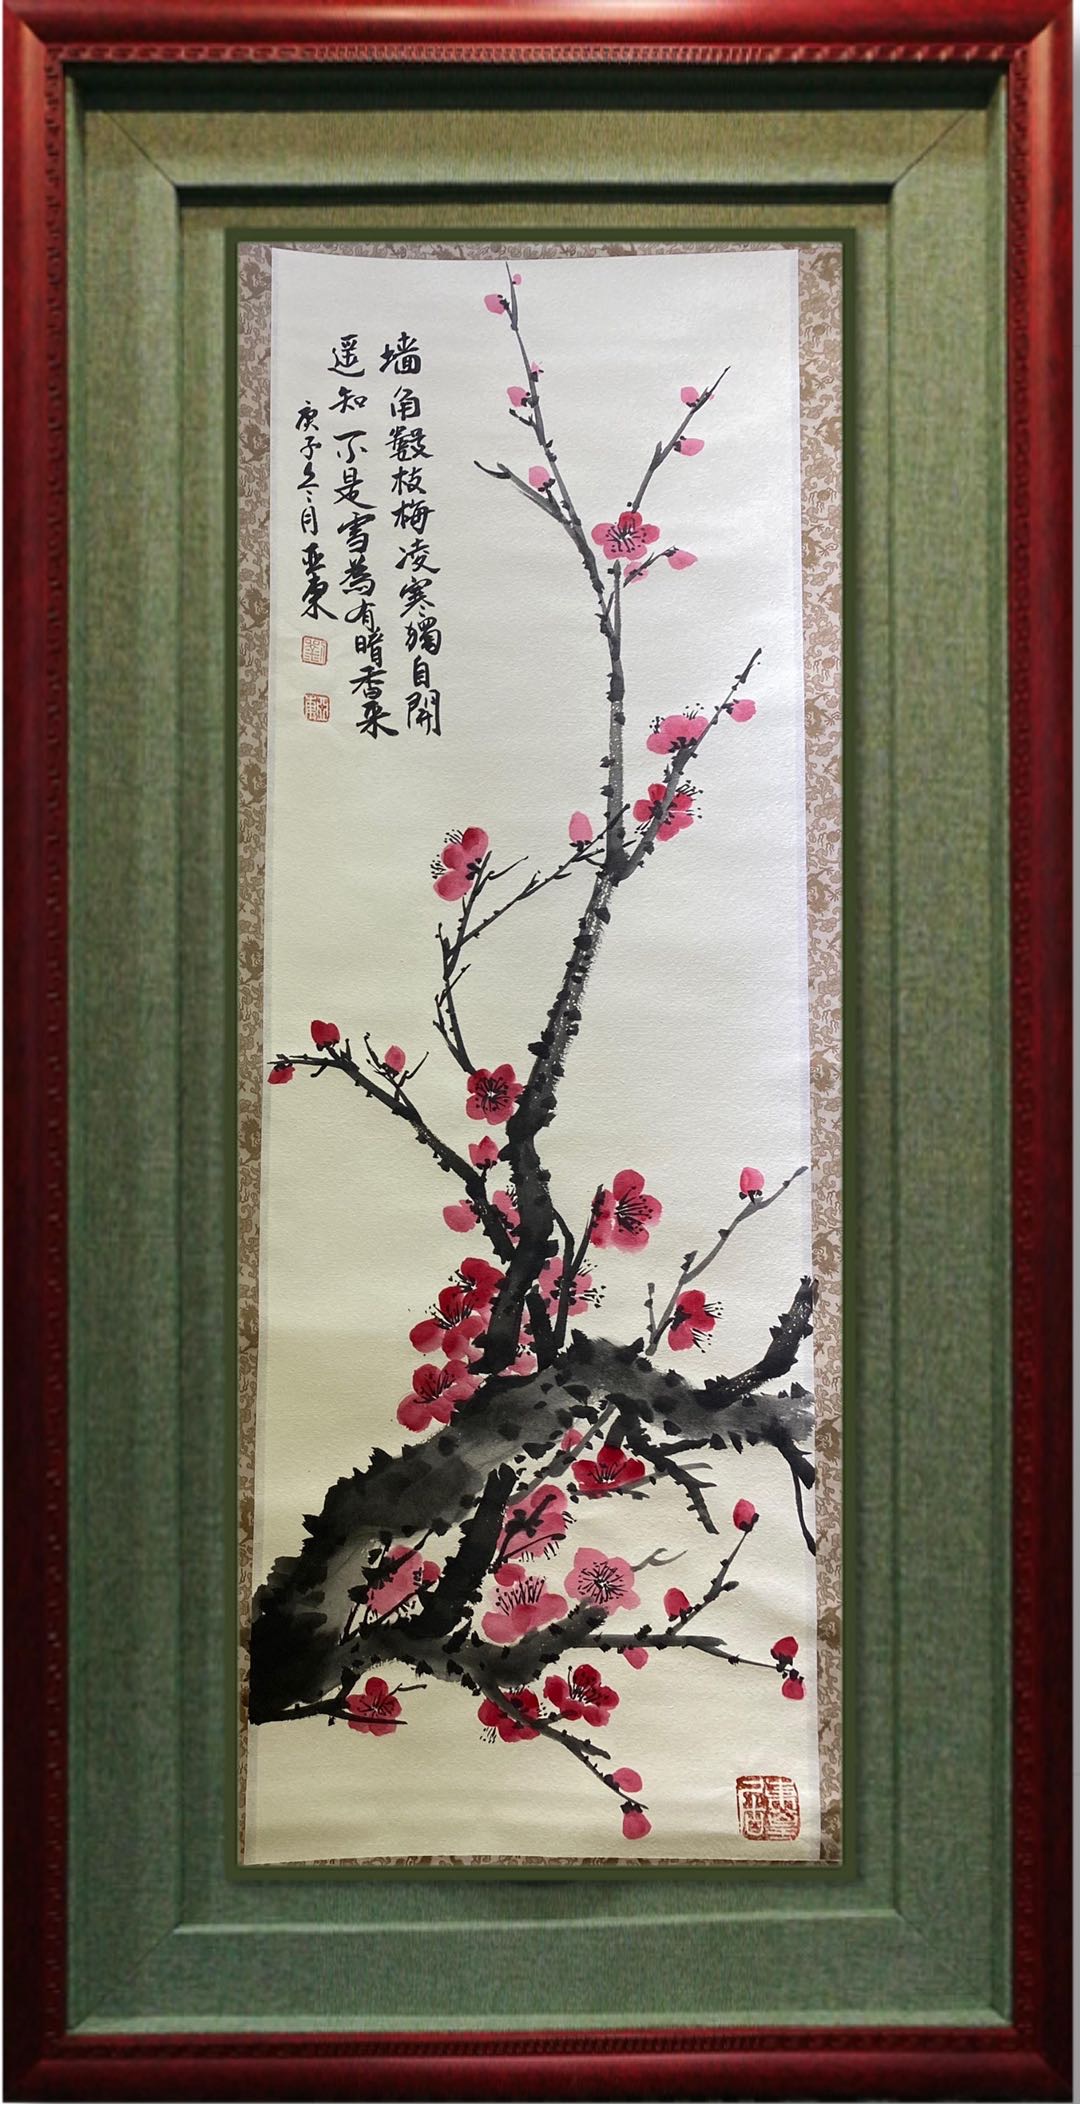 墙角數枝梅凌寒獨自開
遥知不是雪為有暗香来
庚子冬月亚东